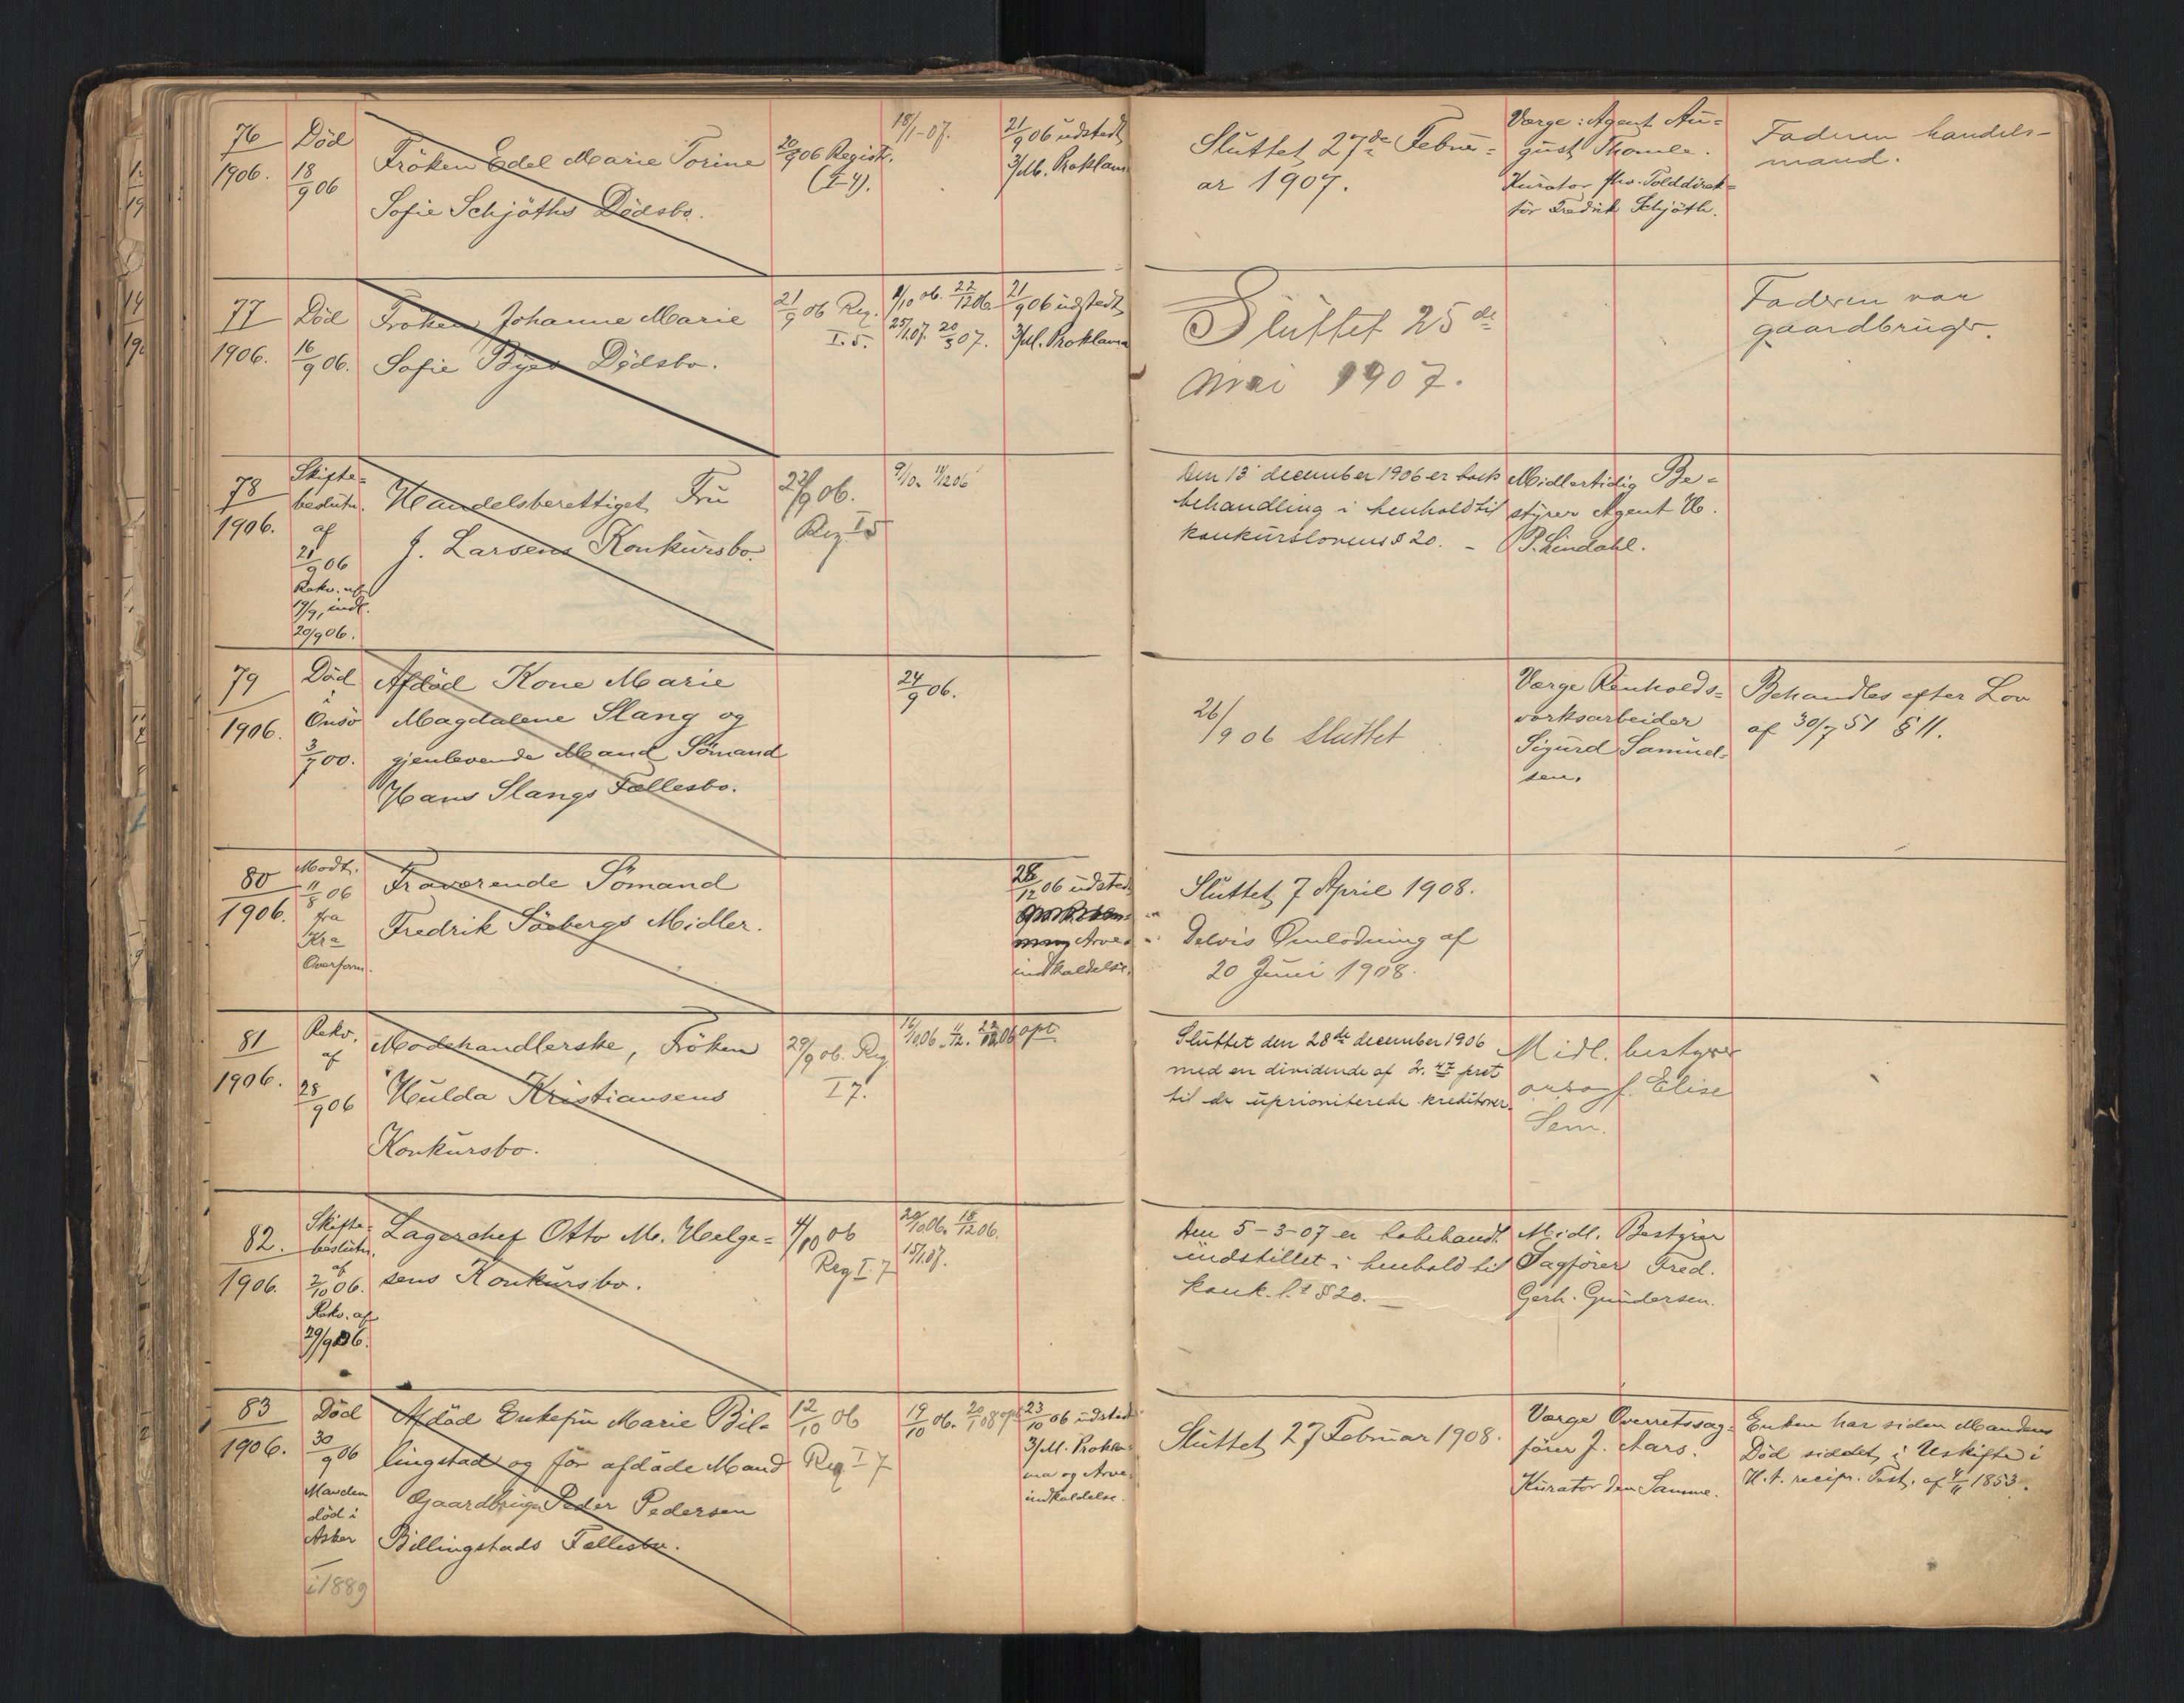 76
1906.
Död
18/9 06
Fröken Edel Marie Torine
Sofie Schjöths Dödsbo.
20/9 06 Registr.
(I-4).
18/1-07.
21/9 06 udstedt
3/M. Proklam
Sluttet 27de Febru=
ar 1907.
Værge: Agent Au=
gust Thomle.
Kurator fhv. Tolddirek=
tör Fredrik Schjöth.
Faderen handels-
mand.
77
1906.
Död
16/9 06.
Fröken Johanne Marie
Sofie Byes Dödsbo.
21/9 06 Reg.
I.5.
9/10 06. 22/12 06.
25/1 07. 20/3 07.
21/9 06 udstedt
3/M. Proklama
Sluttet 25de
mai 1907.
Faderen var
gaardbruger.
78
1906.
Skifte=
beslutn.
af
21/9 06
Rekv. af
19/9, indl.
20/9 06.
Handelsberettiget Fru
J. Larsens Konkursbo.
22/9 06.
Reg I 5
9/10. 11/12 06
Den 13 december 1906 er bots
behandling i henhold til
konkurslovens § 20. -
Midlertidig Be=
styrer Agent H.
P. Lindahl.
79
1906.
Död
i
Onsö
3/7 00.
Afdöd Kone Marie
Magdalene Slang og
gjenlevende Mand Sömand
Hans Slangs Fællesbo.
24/9 06.
26/9 06 Sluttet
Værge Renholds=
værksarbeider
Sigurd Samuel=
sen.
Behandles efter Lov
af 30/7 51 § 11.
80
1906.
Modt.
11/8 06
fra
Kra
Overform.
Fraværende Sömand
Fredrik Söebergs Midler.
28/12 06 udsted
Arve=
indkaldelse.
Sluttet 7 April 1908.
Delvis Omlodning af
20 Juni 1908.
81
1906.
Rekv.
af
28/9 06
Modehandlerske, Fröken
Hulda Kristiansens
Konkursbo.
29/9 06. Reg
I 7.
16/10 06. 11/12. 22/12 06 opt.
Sluttet den 28de december 1906
med en dividende af 2.47 prct
til de uprioriterede kreditorer.
Midl. bestyrer
o.r.sagf. Elise
Sem.
82.
1906.
Skifte=
beslutn.
af
2/10 06.
Rekv. af
29/9 06.
Lagerchef Otto M. Helge=
sens Konkursbo.
4/10 06
Reg I 7
20/10 06. 18/12 06.
15/1 07.
Den 5-3-07 er bobehandl.
indstillet i henhold til
konk. l.s § 20. -
Midl. Bestyrer
Sagförer Fred.
Gerh. Gundersen.
83
1906.
Död
30/9 06
Manden
död i
Asker
i 1889
Afdöd Enkefru Marie Bil-
lingstad og för afdöde Mand
Gaardbruger Peder Pedersen
Billingstads Fællesbo.
12/10 06
Reg I 7
19/10 06. 20/1 08 opt
23/10 06 udstedt
3/M. Prokla=
ma og Arve=
indkaldelse.
Sluttet 27 Februar 1908.
Værge Overretssag=
förer J. Aars.
Kurator den Samme.
Enken har siden Mandens
Död siddet i Uskifte i
H.t. recipr. Test. af 4/11 1853.